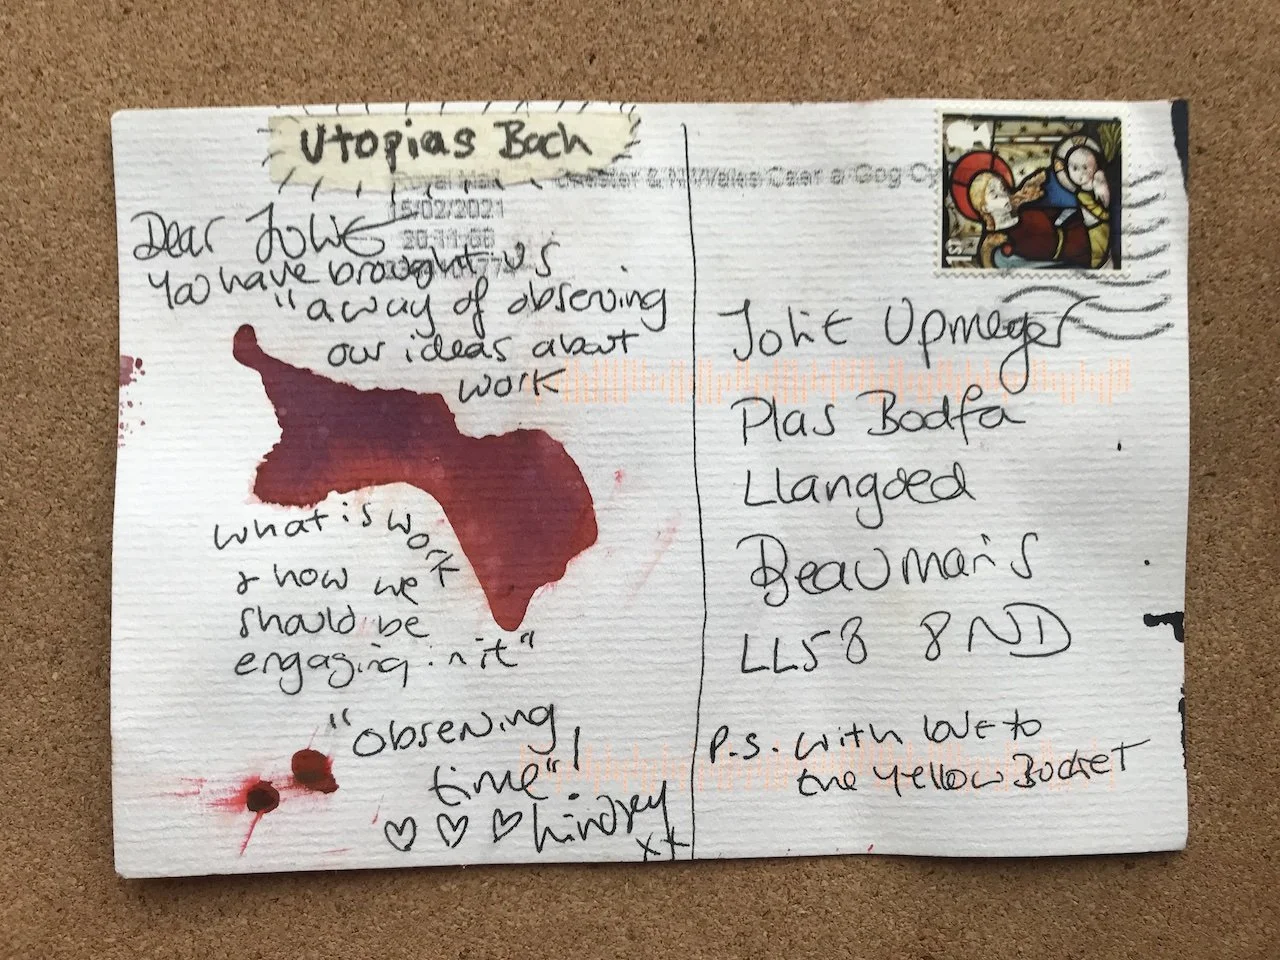 Utopias Bach
Royal Mail Chester & N Wales Caer a Gog Cy
15/02/2021
Dear Jolie
You have brought us
"a way of observing
our ideas about
work
what is work
& how we
should be
engaging in it"
"observing
time"!
♡ ♡ ♡ Lindsey
xx
Jolie Upmeyer
Plas Bodfa
Llangoed
Beaumaris
LL58 8ND
P.S. with love to
the Yellow Bucket